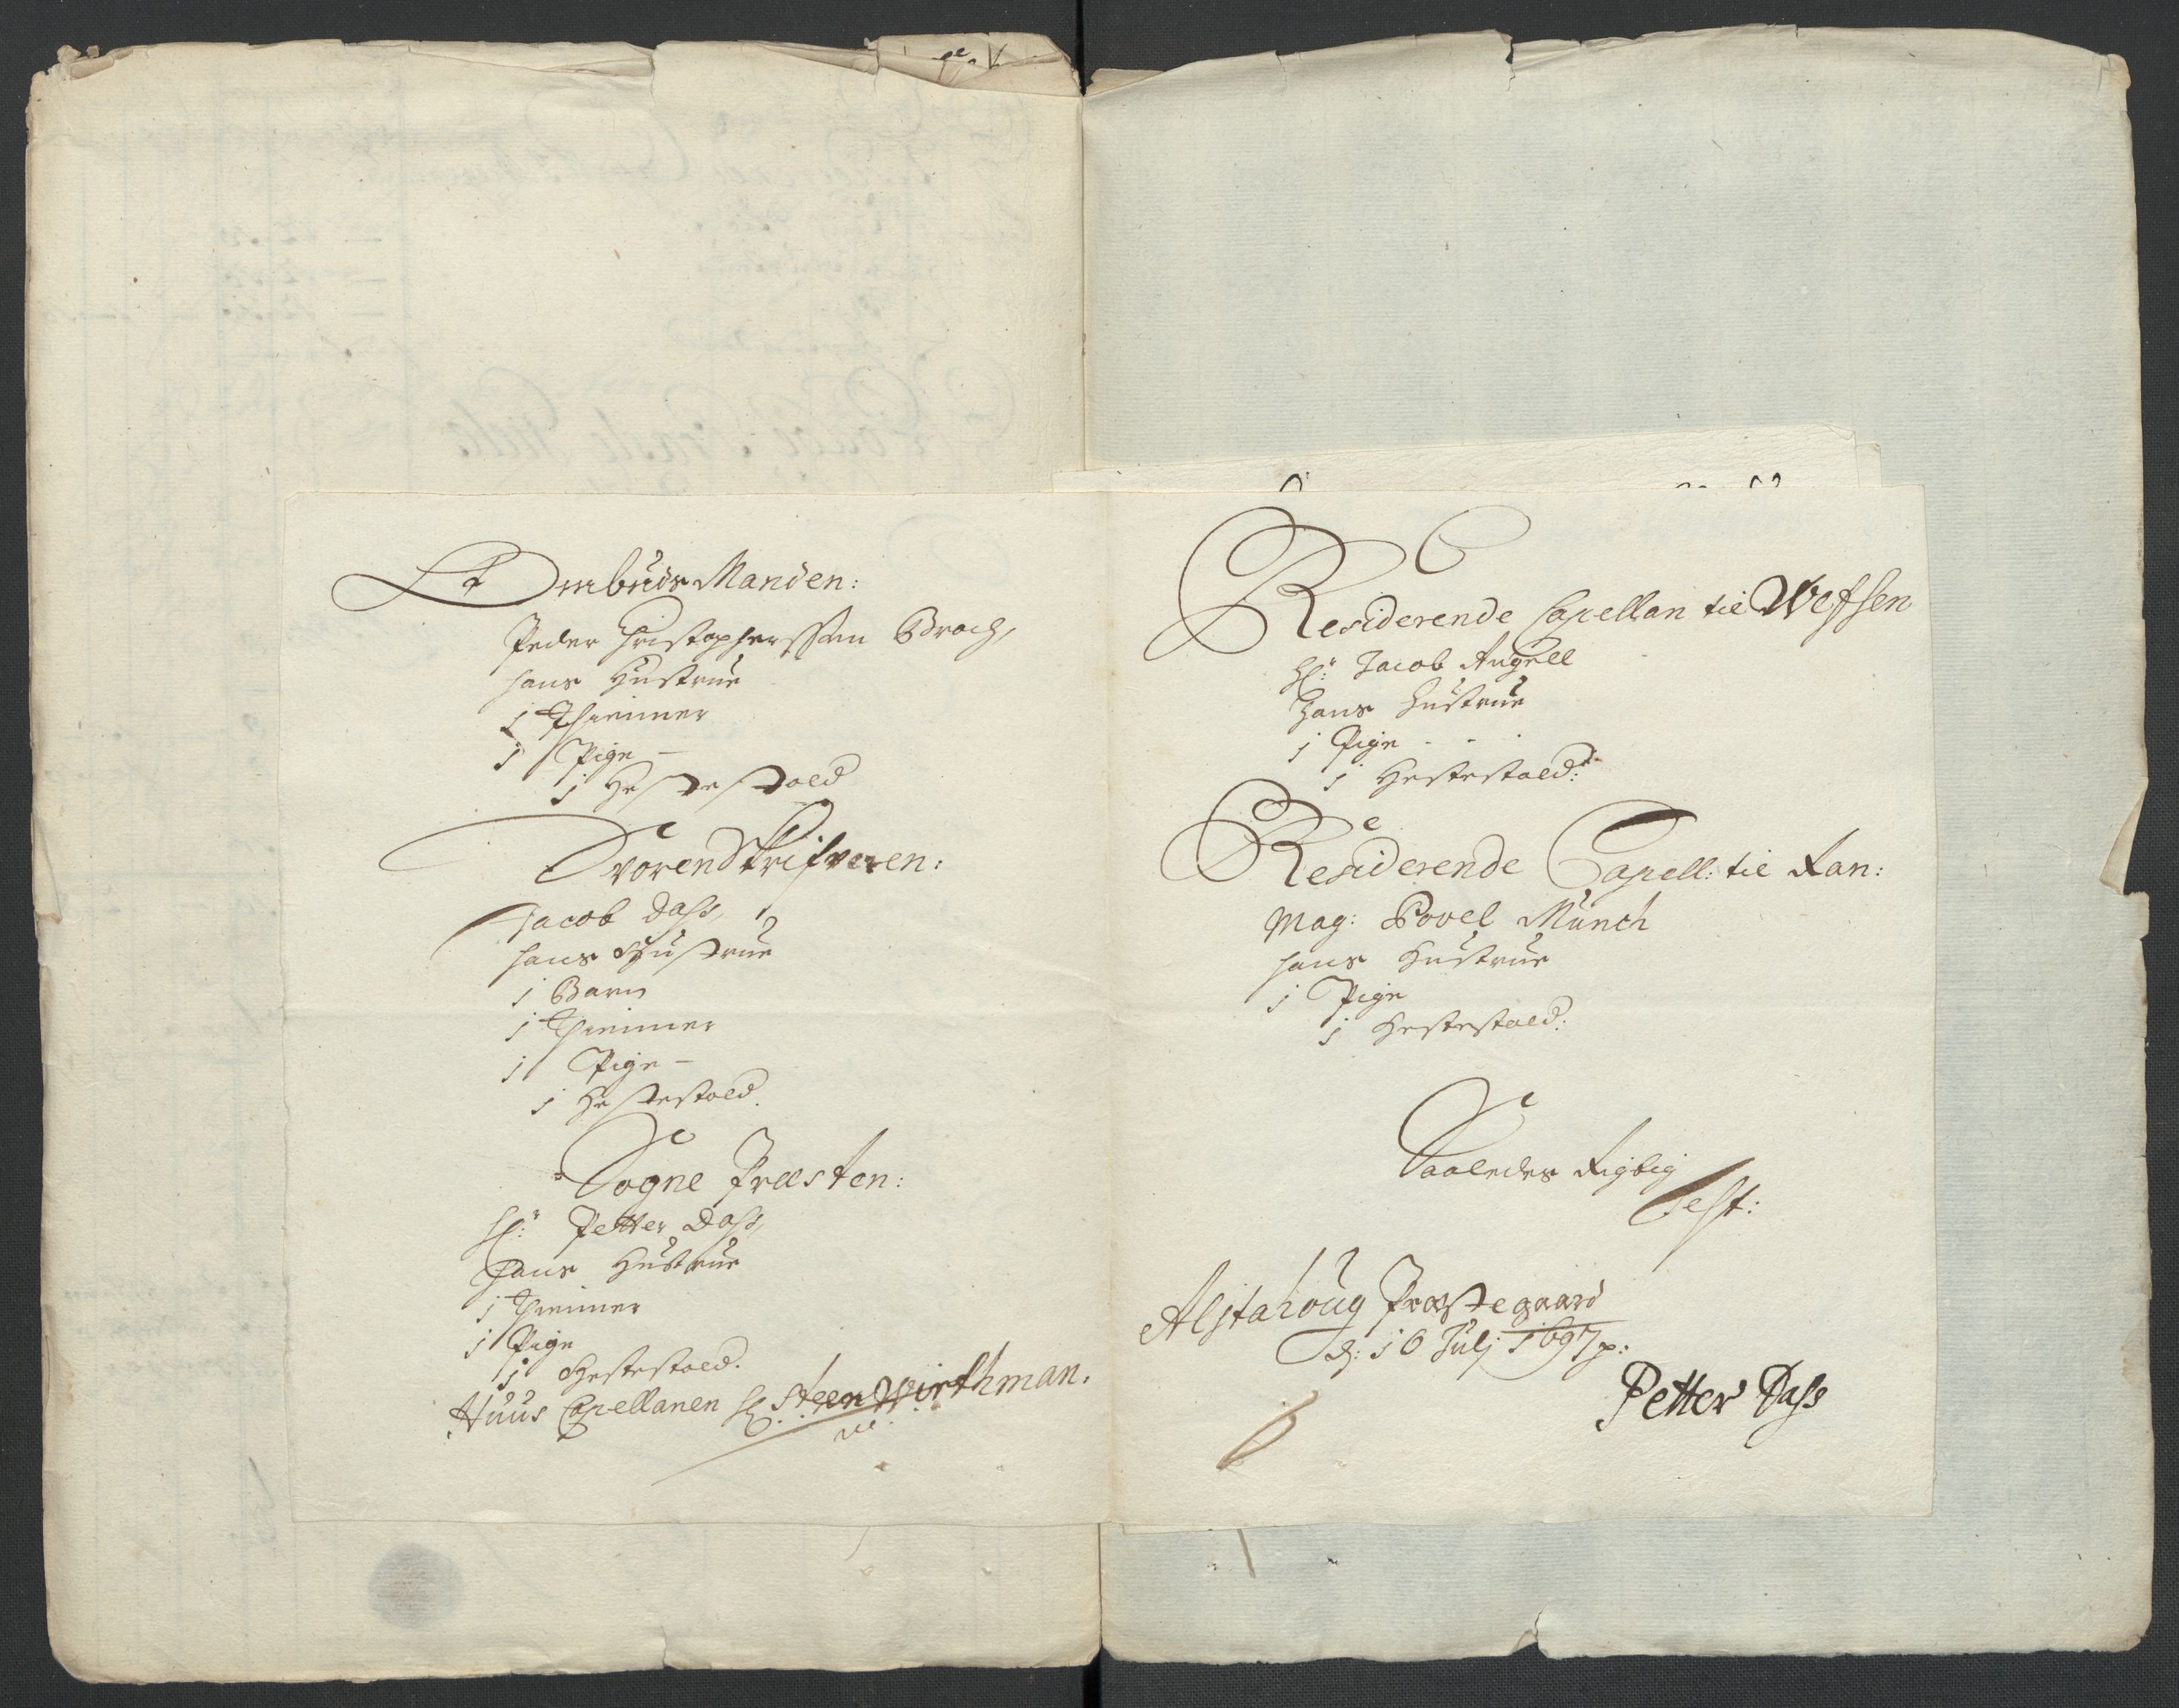 OmbudsManden:
Peder Christopherssøn Broch,
hans Hustrue
1 Thienner
1 Pige —
1 Hestestold
SvorenSkrifveren:
Jacob Dass,
hans Hustrue
1 Barn
1 Thienner
1 Pige —
1 Hestestold.
Sogne Præsten:
Hr: Petter Dass,
Hans Hustrue
1 Thienner
1 Pige
1 Hestestold.
Huus Capellanen Hr Steen Wirthman.
Residerende Capellan til Wefsen
Hr: Jacob Angell
Hans Hustrue
1 Pige
1 Hestestold:
Residerende Capell: til Ran:
Mag: Povel Munch
hans Hustrue
1 Pige
1 Hestestold:
Saaledes Rigtig
Test:
Alstahoug Præstegaard
d: 16 Julj 1697
Petter Dass